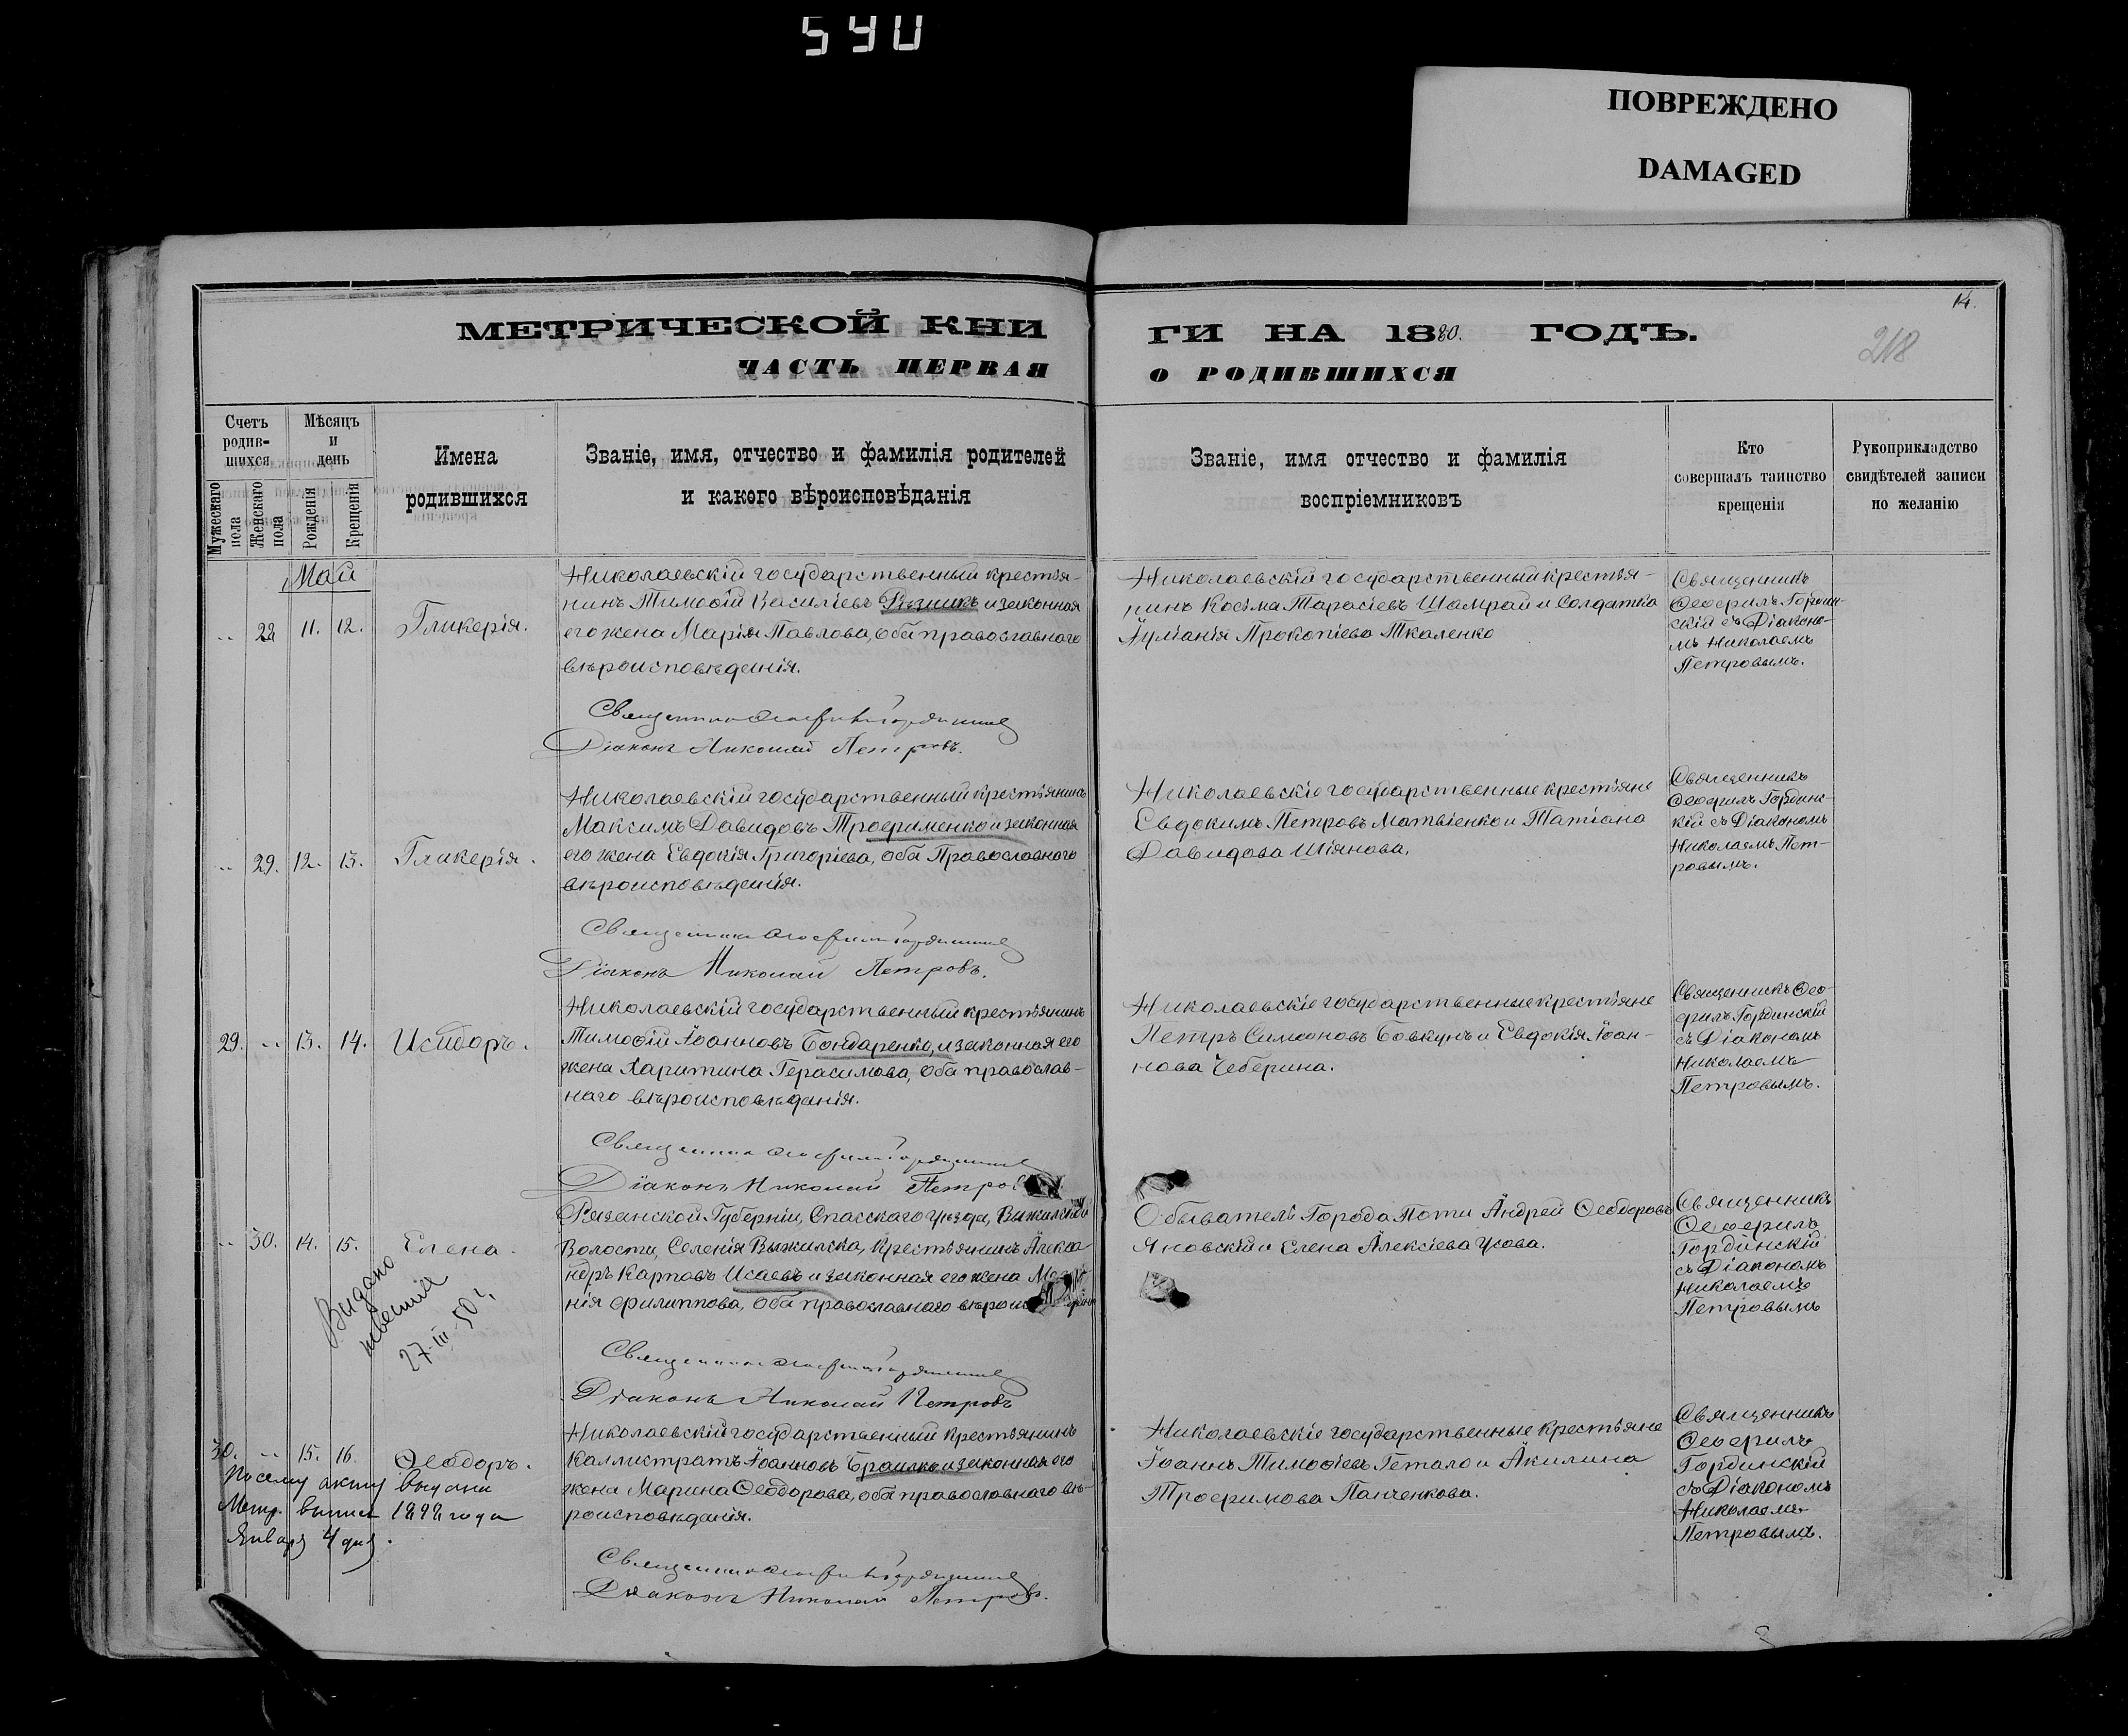 590
ПОВРЕЖДЕНО
DAMAGED
14.
218
МЕТРИЧЕСКОЙ КНИ
ГИ НА 1880. ГОДЪ.
ЧАСТЬ ПЕРВАЯ
О РОДИВШИХСЯ
Счетъ родив-шихся
Мужескаго пола
Женскаго пола
Мѣсяцъ и день
Рожденія
Крещенія
Имена родившихся
Званіе, имя, отчество и фамилія родителей
и какого вѣроисповѣданія
Званіе, имя отчество и фамилія
воспріемниковъ
Кто
совершалъ таинство
крещенія
Рукоприкладство
свидѣтелей записи
по желанію
Май
.. 28 11. 12. Гликерія.
Николаевскій государственный крестья-
нинъ Тимоѳій Василіевъ Рѣзникъ и законная
его жена Марія Павлова, оба православнаго
вѣроисповѣданія.
Священникъ Ѳеофилъ Гординскій
Діаконъ Николай Петровъ.
Николаевскій государственный крестья-
нинъ Косьма Тарасіевъ Шамрай и Солдатка
Іуліанія Прокопіева Ткаленко
Священникъ
Ѳеофилъ Гордин-
скій съ Діаконо-
мъ Николаемъ
Петровымъ.
.. 29. 12. 13. Гликерія.
Николаевскій государственный крестьянинъ
Максимъ Давидовъ Трофименко и законная
его жена Евдокія Григоріева, оба Православнаго
вѣроисповѣданія.
Священникъ Ѳеофилъ Гординскій
Діаконъ Николай Петровъ.
Николаевскіе государственные крестьяне
Евдокимъ Петровъ Матвіенко и Татіана
Давидова Шіянова.
Священникъ
Ѳеофилъ Гординс-
кій съ Діакономъ
Николаемъ Пет-
ровымъ.
29. .. 13. 14. Исидоръ.
Николаевскій государственный крестьянинъ
Тимоѳій Іоанновъ Бондаренко, и законная его
жена Харитина Герасимова, оба православ-
наго вѣроисповѣданія.
Священникъ Ѳеофилъ Гординскій
Діаконъ Николай Петровъ
Николаевскіе государственные крестьяне
Петръ Симеоновъ Бовкунъ и Евдокія Іоан-
нова Чеберина.
Священникъ Ѳео-
филъ Гординскій
съ Діакономъ
Николаемъ
Петровымъ.
.. 30. 14. 15. Елена.
Рязанской Губерніи, Спасскаго Уѣзда, Выжилской
Волости, Селенія Выжилска, Крестьянинъ Алекса
ндръ Карповъ Исаевъ и законная его жена
нія Филиппова, оба православнаго
Священникъ Ѳеофилъ Гординскій
Діаконъ Николай Петровъ
Обыватель Города Поти Андрей Ѳеодоровъ
Яновскій и Елена Алексіева Усова.
Священникъ
Ѳеофилъ
Гординскій
съ Діакономъ
Николаемъ
Петровымъ
Видано
27-III-50 г.
30. .. 15. 16. Ѳеодоръ.
Николаевскій государственный крестьянинъ
Каллистратъ Іоанновъ Браилко и законная его
жена Марина Ѳеодорова, оба православнаго вѣ-
роисповѣданія.
Священникъ Ѳеофилъ Гординскій
Діаконъ Николай Петровъ.
Николаевскіе государственные крестьяне
Іоаннъ Тимоѳіевъ Гетало и Акилина
Трофимова Панченкова.
Священникъ
Ѳеофилъ
Гординскій
съ Діакономъ
Николаемъ
Петровымъ.
По сему акту выдана
Метр. выпись года
Января 4 дня.